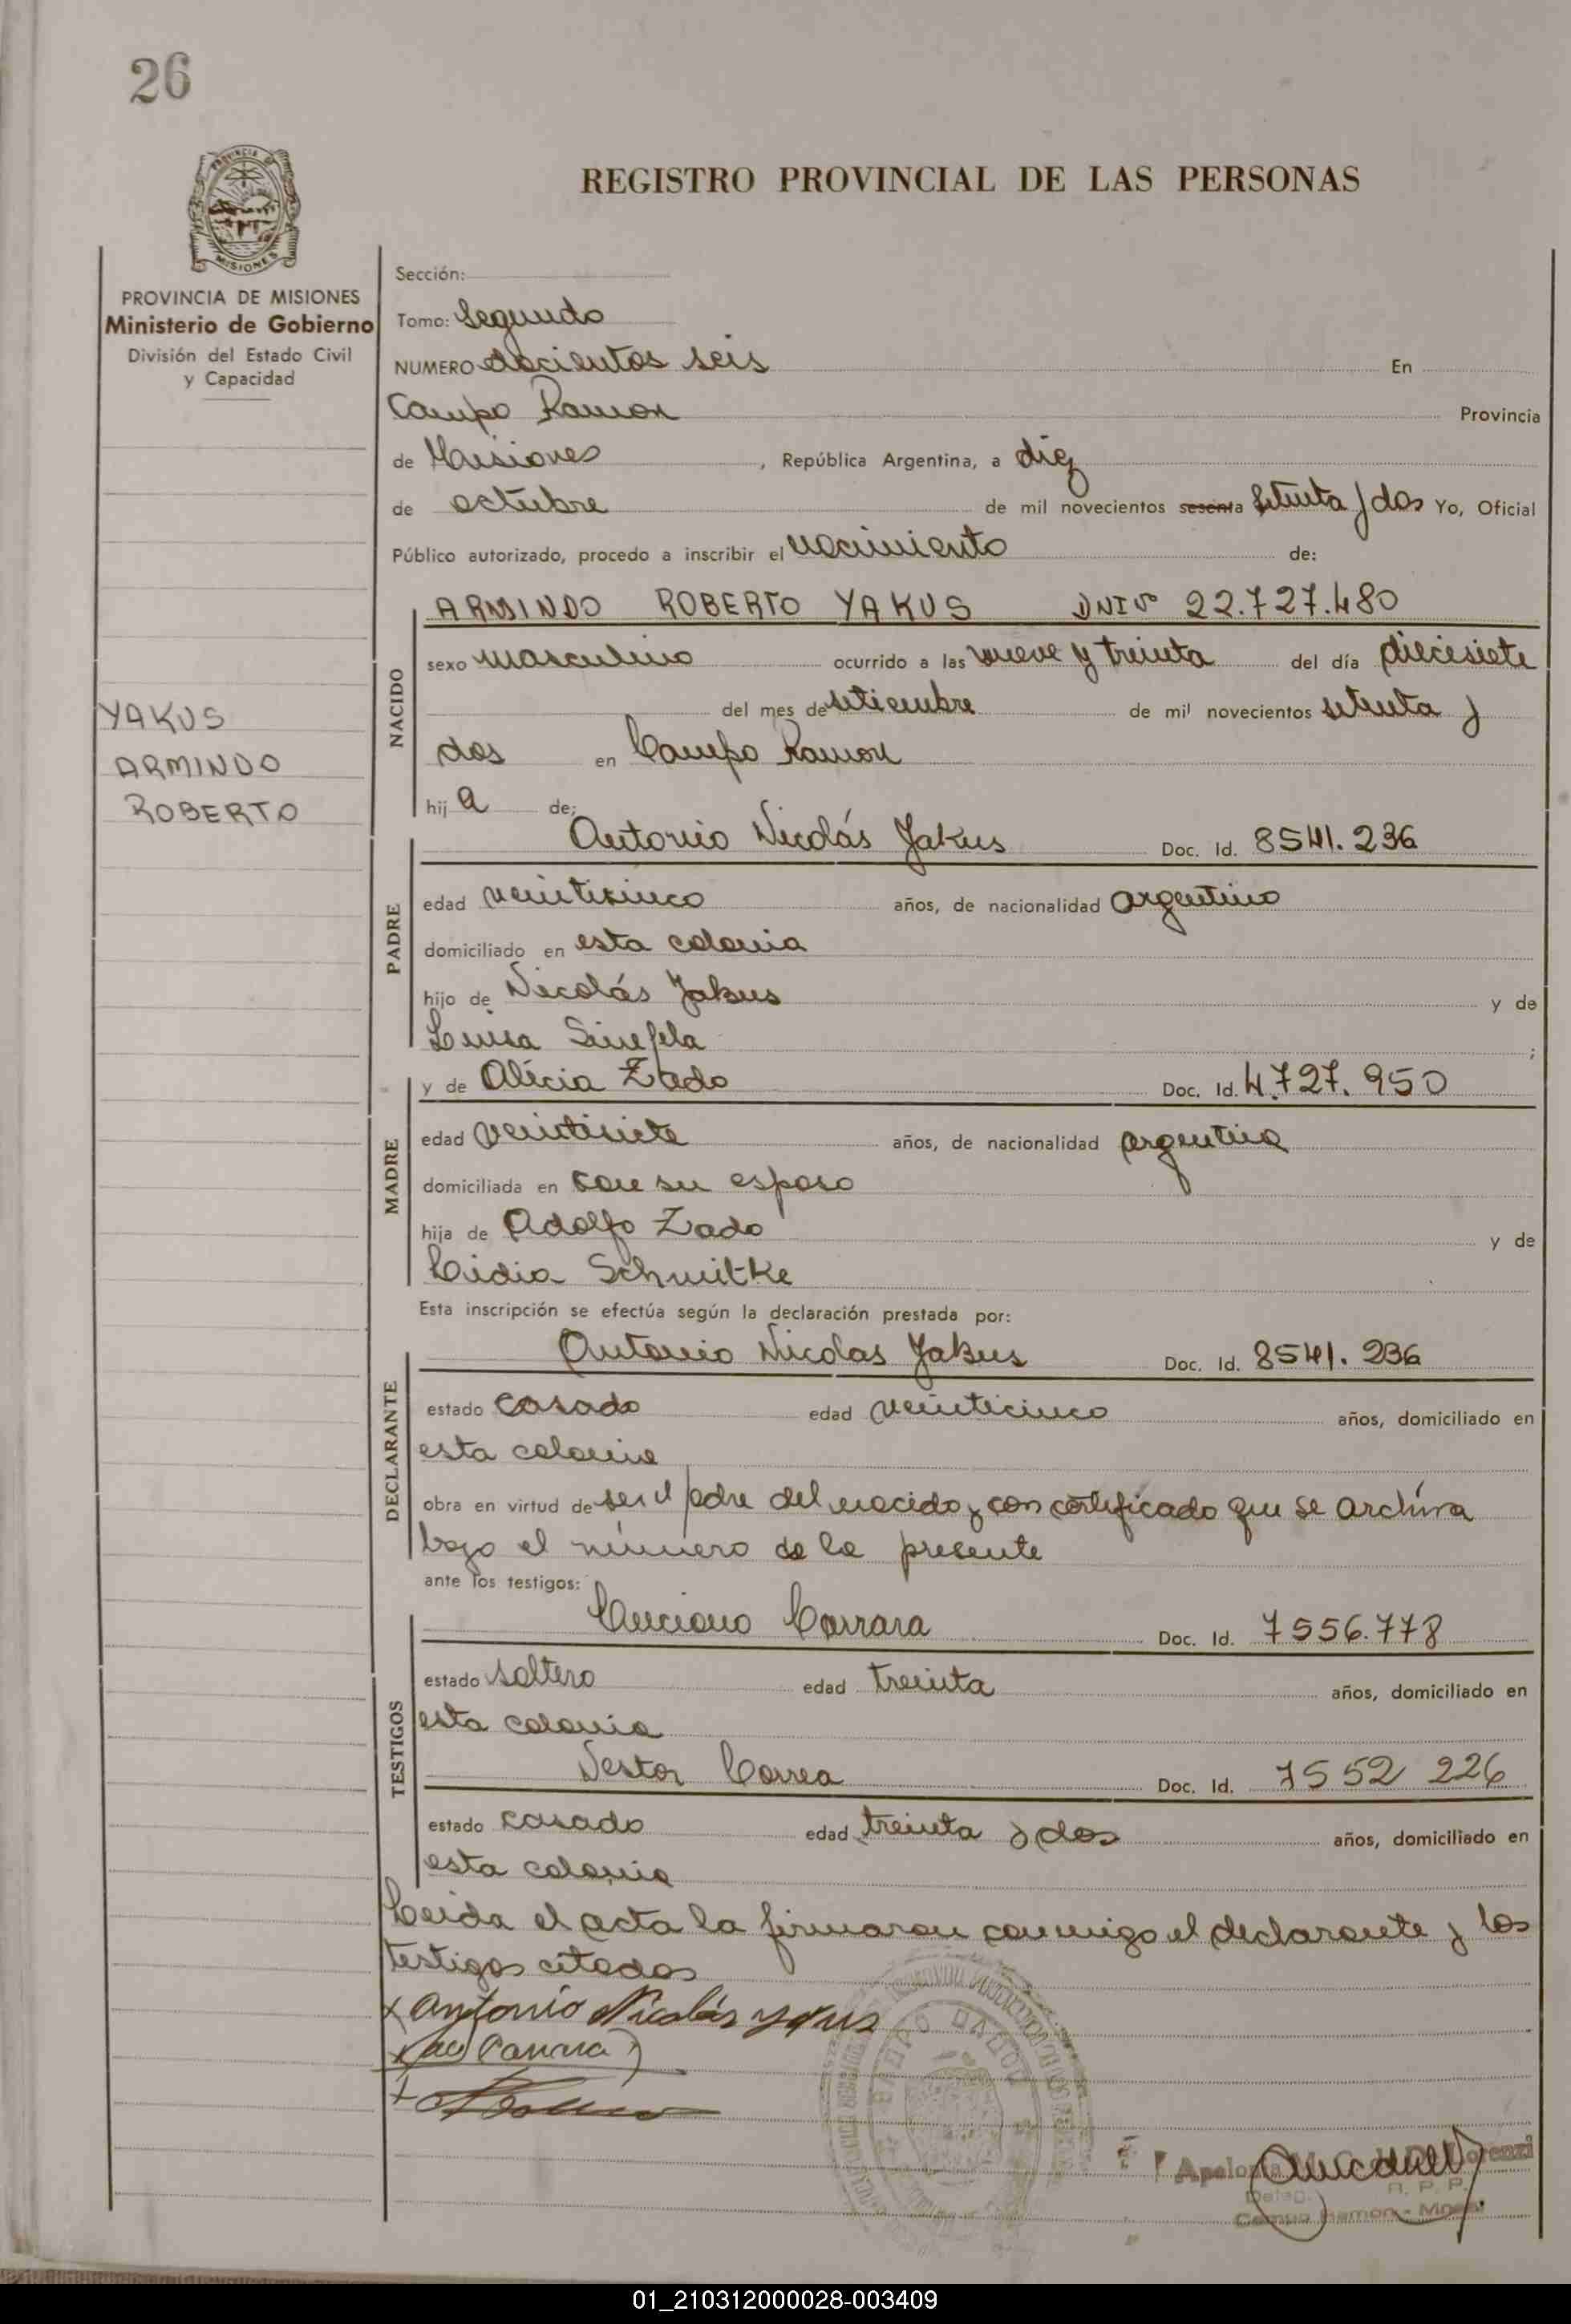 26
PROVINCIA DE
MISIONES
REGISTRO PROVINCIAL DE LAS PERSONAS
PROVINCIA DE MISIONES
Ministerio de Gobierno
División del Estado Civil
y Capacidad
YAKUS
ARMINDO
ROBERTO
Sección:
Tomo: Segundo
NUMERO docientos seis En
Campo Ramon Provincia
de Misiones, República Argentina, a diez
de octubre de mil novecientos sesenta setenta y dos Yo, Oficial
Público autorizado, procedo a inscribir el nacimiento de:
NACIDO
ARMINDO ROBERTO YAKUS DNI Nº 22.727.480
sexo masculino ocurrido a las nueve y treinta del día diecisiete
del mes de setiembre de mil novecientos setenta y
dos en Campo Ramon
hij a de:
PADRE
Antonio Nicolás Yakus Doc. Id. 8541.236
edad veinticinco años, de nacionalidad argentino
domiciliado en esta colonia
hijo de Nicolás Yakus y de
Luisa ;
MADRE
y de Alicia Zado Doc. Id. 4.727.950
edad veintisiete años, de nacionalidad argentina
domiciliada en con su esposo
hija de Adolfo Zado y de
Lidia Schmitke
Esta inscripción se efectúa según la declaración prestada por:
DECLARANTE
Antonio Nicolas Yakus Doc. Id. 8541.236
estado casado edad veinticinco años, domiciliado en
esta colonia
obra en virtud de ser el padre del nacido y con certificado que se archiva
bajo el número de la presente
ante los testigos:
TESTIGOS
Luciano Carrara Doc. Id. 7556.778
estado soltero edad treinta años, domiciliado en
esta colonia
Nestor Correa Doc. Id. 7552 226
estado casado edad treinta y dos años, domiciliado en
esta colonia
Leida el acta la firmaron conmigo el declarante y los
testigos citados
x Antonio Nicolás Yakus
Campo Ramon - Mnes.
01_210312000028-003409